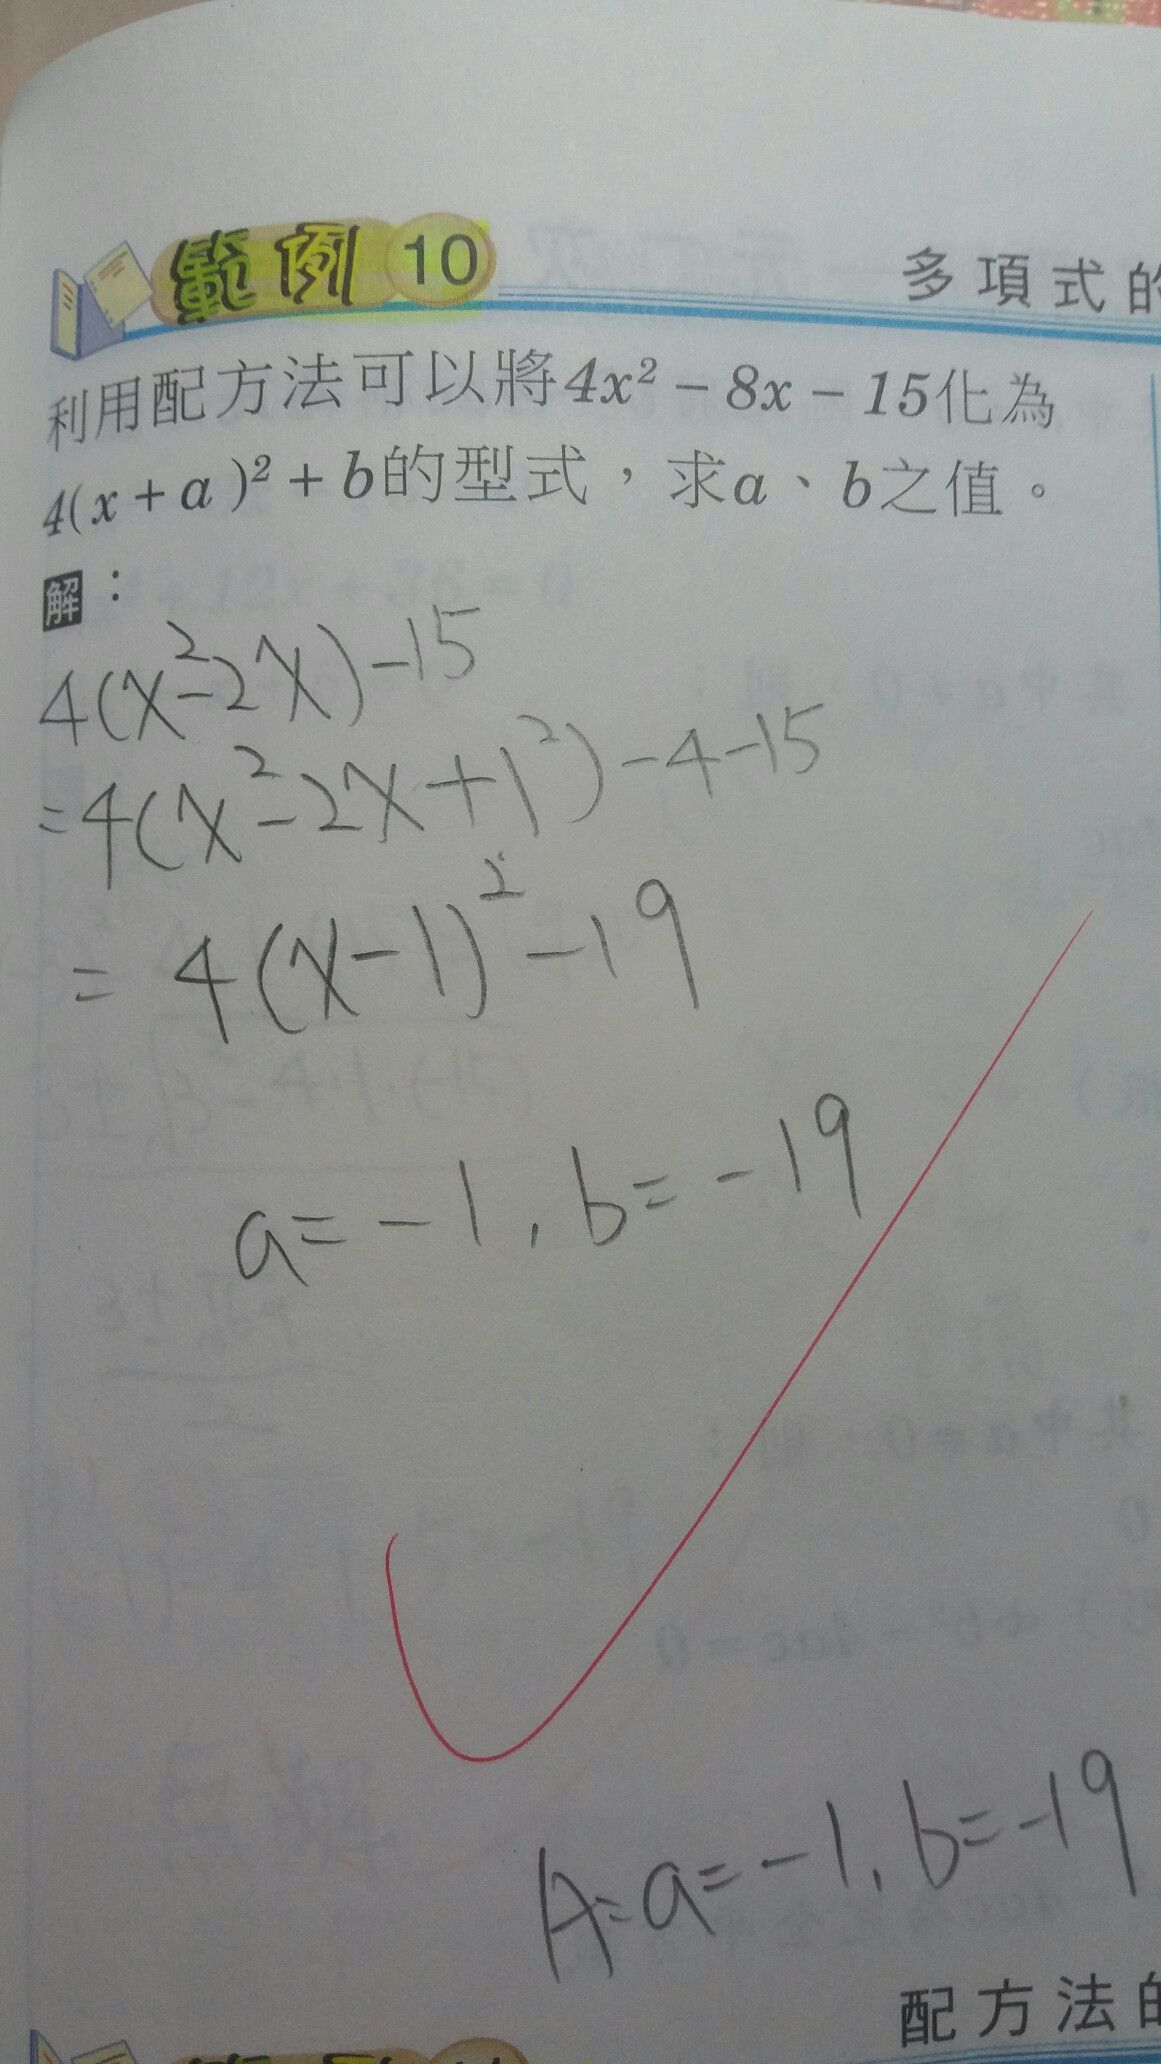 範例 10
多項式的
利用配方法可以將4x² − 8x − 15化為
4(x + a )² + b的型式，求a、b之值。
解：
4(x²-2x)-15
=4(x²-2x+1²)-4-15
= 4(x-1)²-19
a=-1, b=-19
A=a=-1, b=-19
配方法的